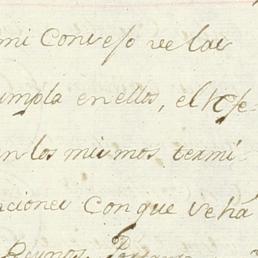 mi Consejo de las
umpla en ellos, el Refe-
n los mismos termi-
aciones con que se há
Reynos